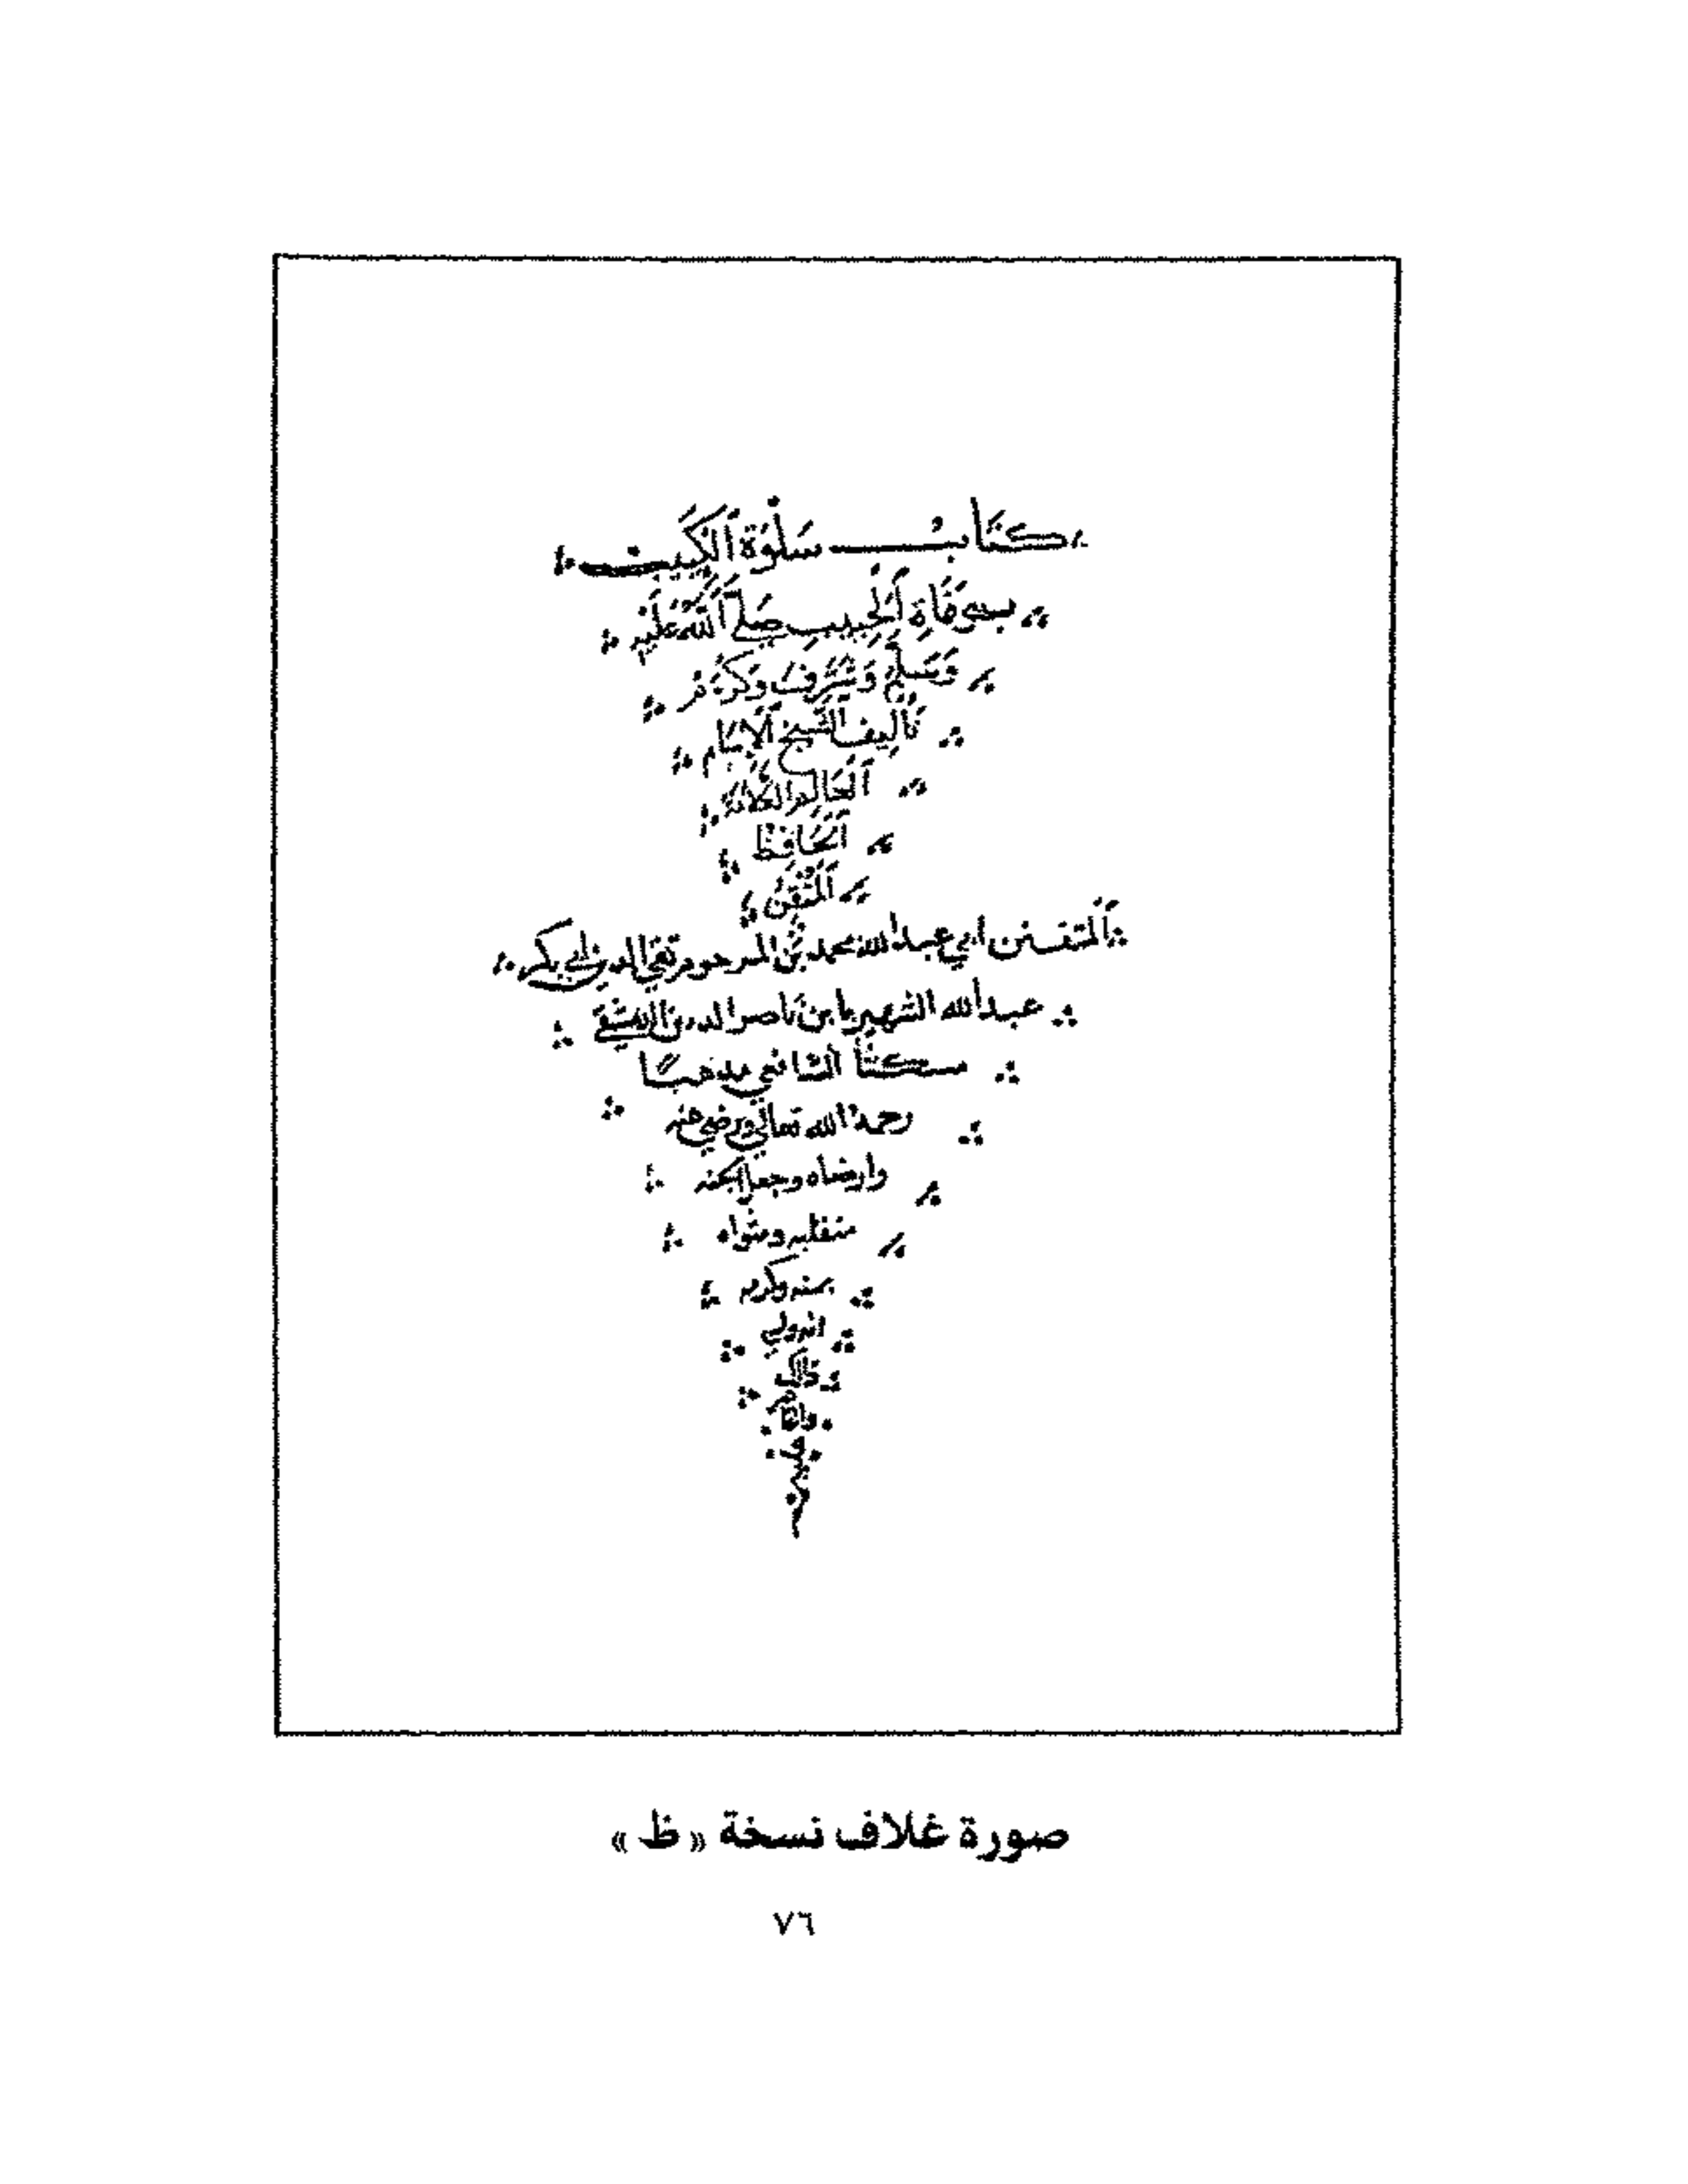 كتابُ سَلْوَة ٱلكَئِيبْ
بِوَفَاةِ ٱلحَبِيبِ صَلَّى ٱللَّهُ عَلَيْهِ
وَسَلَّمَ وَشَرَّفَ وَكَرَّمَ
تَأْلِيفُ الشَّيخ ٱلْإِمَام
ٱلْعَالِمِ العَلَّامَةِ
ٱلْحَافِظ
ٱلْمُتْقِن
ٱلْمتفنن ابي عبد الله محمد بن المرحوم تقي الدين ابي بكر
عبد الله الشهير بابن ناصر الدين الدمشقي
مسكنًا الشافعي مذهبًا
رحمه الله تعالى ورضي عنه
وارضاه وجعل الجنه
منقلبه ومثواه
بمنه وكرمه
انه ولي
ذلك
صورة غلاف نسخة « ظ »
٧٦